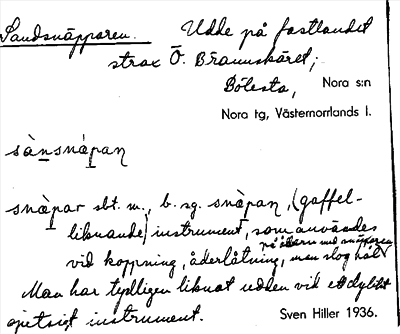 Sandsnäpparen. Udde på fastlandet
strax Ö. Brännskäret;
Bölesta, Nora s:n
Nora tg, Västernorrlands l.
sànsnàpan
snàpar sbt. m., b. sg. snàpan, (gaffel-
liknande) instrument, som användes
vid koppning, åderlåtning, man slog hål
på ådern med snäpparen
Man har tydligen liknat udden vid ett dylikt
spetsigt instrument. Sven Hiller 1936.